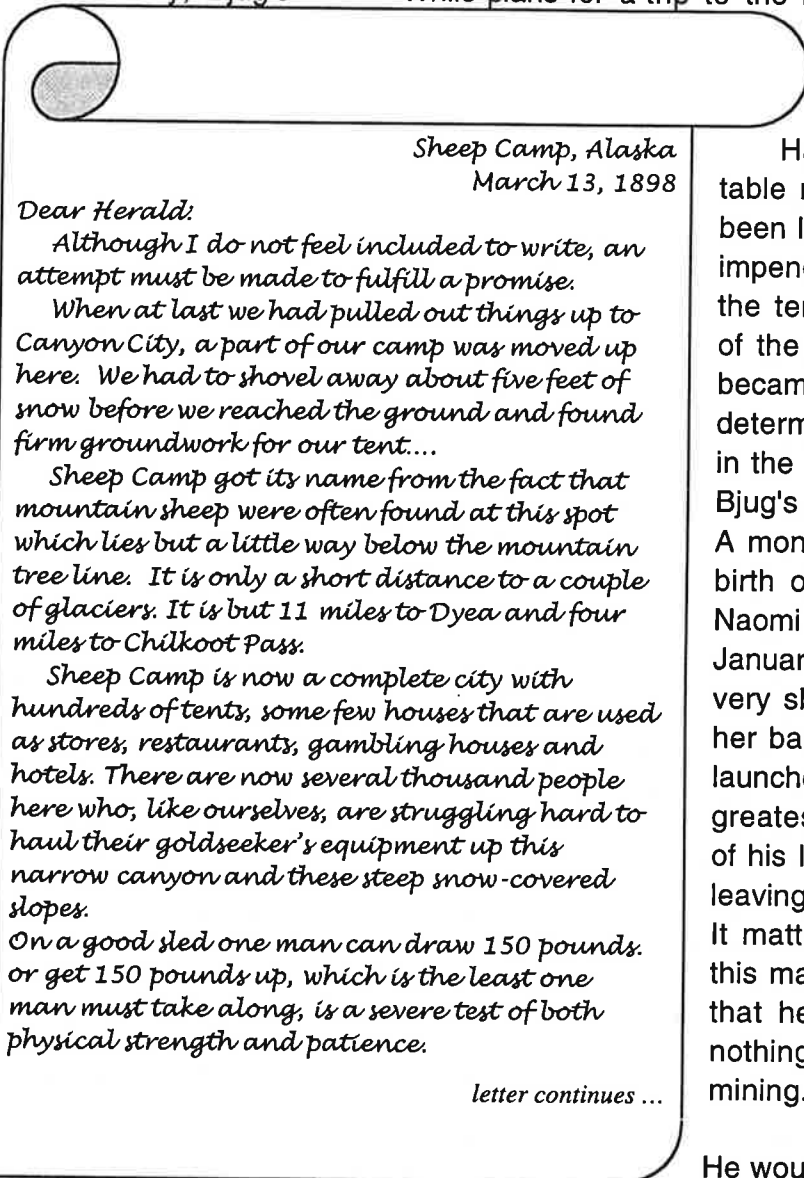 While plans for a trip to the
Sheep Camp, Alaska
March 13, 1898
Dear Herald:
Although I do not feel included to write, an
attempt must be made to fulfill a promise.
When at last we had pulled out things up to
Canyon City, a part of our camp was moved up
here. We had to shovel away about five feet of
snow before we reached the ground and found
firm groundwork for our tent....
Sheep Camp got its name from the fact that
mountain sheep were often found at this spot
which lies but a little way below the mountain
tree line. It is only a short distance to a couple
of glaciers. It is but 11 miles to Dyea and four
miles to Chilkoot Pass.
Sheep Camp is now a complete city with
hundreds of tents, some few houses that are used
as stores, restaurants, gambling houses and
hotels. There are now several thousand people
here who, like ourselves, are struggling hard to
haul their goldseeker's equipment up this
narrow canyon and these steep snow-covered
slopes.
On a good sled one man can draw 150 pounds.
or get 150 pounds up, which is the least one
man must take along, is a severe test of both
physical strength and patience.
letter continues ...
table
been
impen
the
of the
becam
determ
in the
Bjug's
A mon
birth
Naomi
Januar
very
her
launche
greates
of his
leaving
It matt
this
that
nothing
mining.
He wou